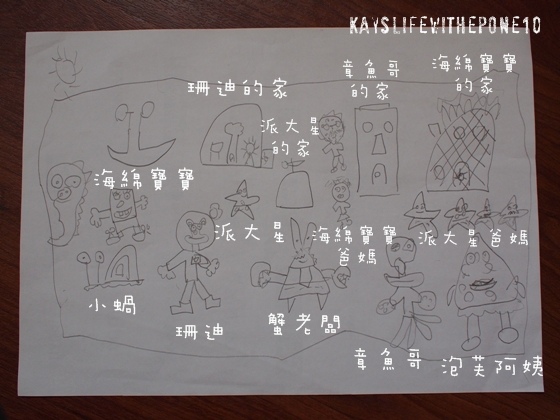 KAYSLIFEWITHEPONE10
珊迪的家
章魚哥
的家
海綿寶寶
的家
派大星
的家
海綿寶寶
派大星
海綿寶寶
爸媽
派大星爸媽
小蝸
珊迪
蟹老闆
章魚哥
泡芙阿姨